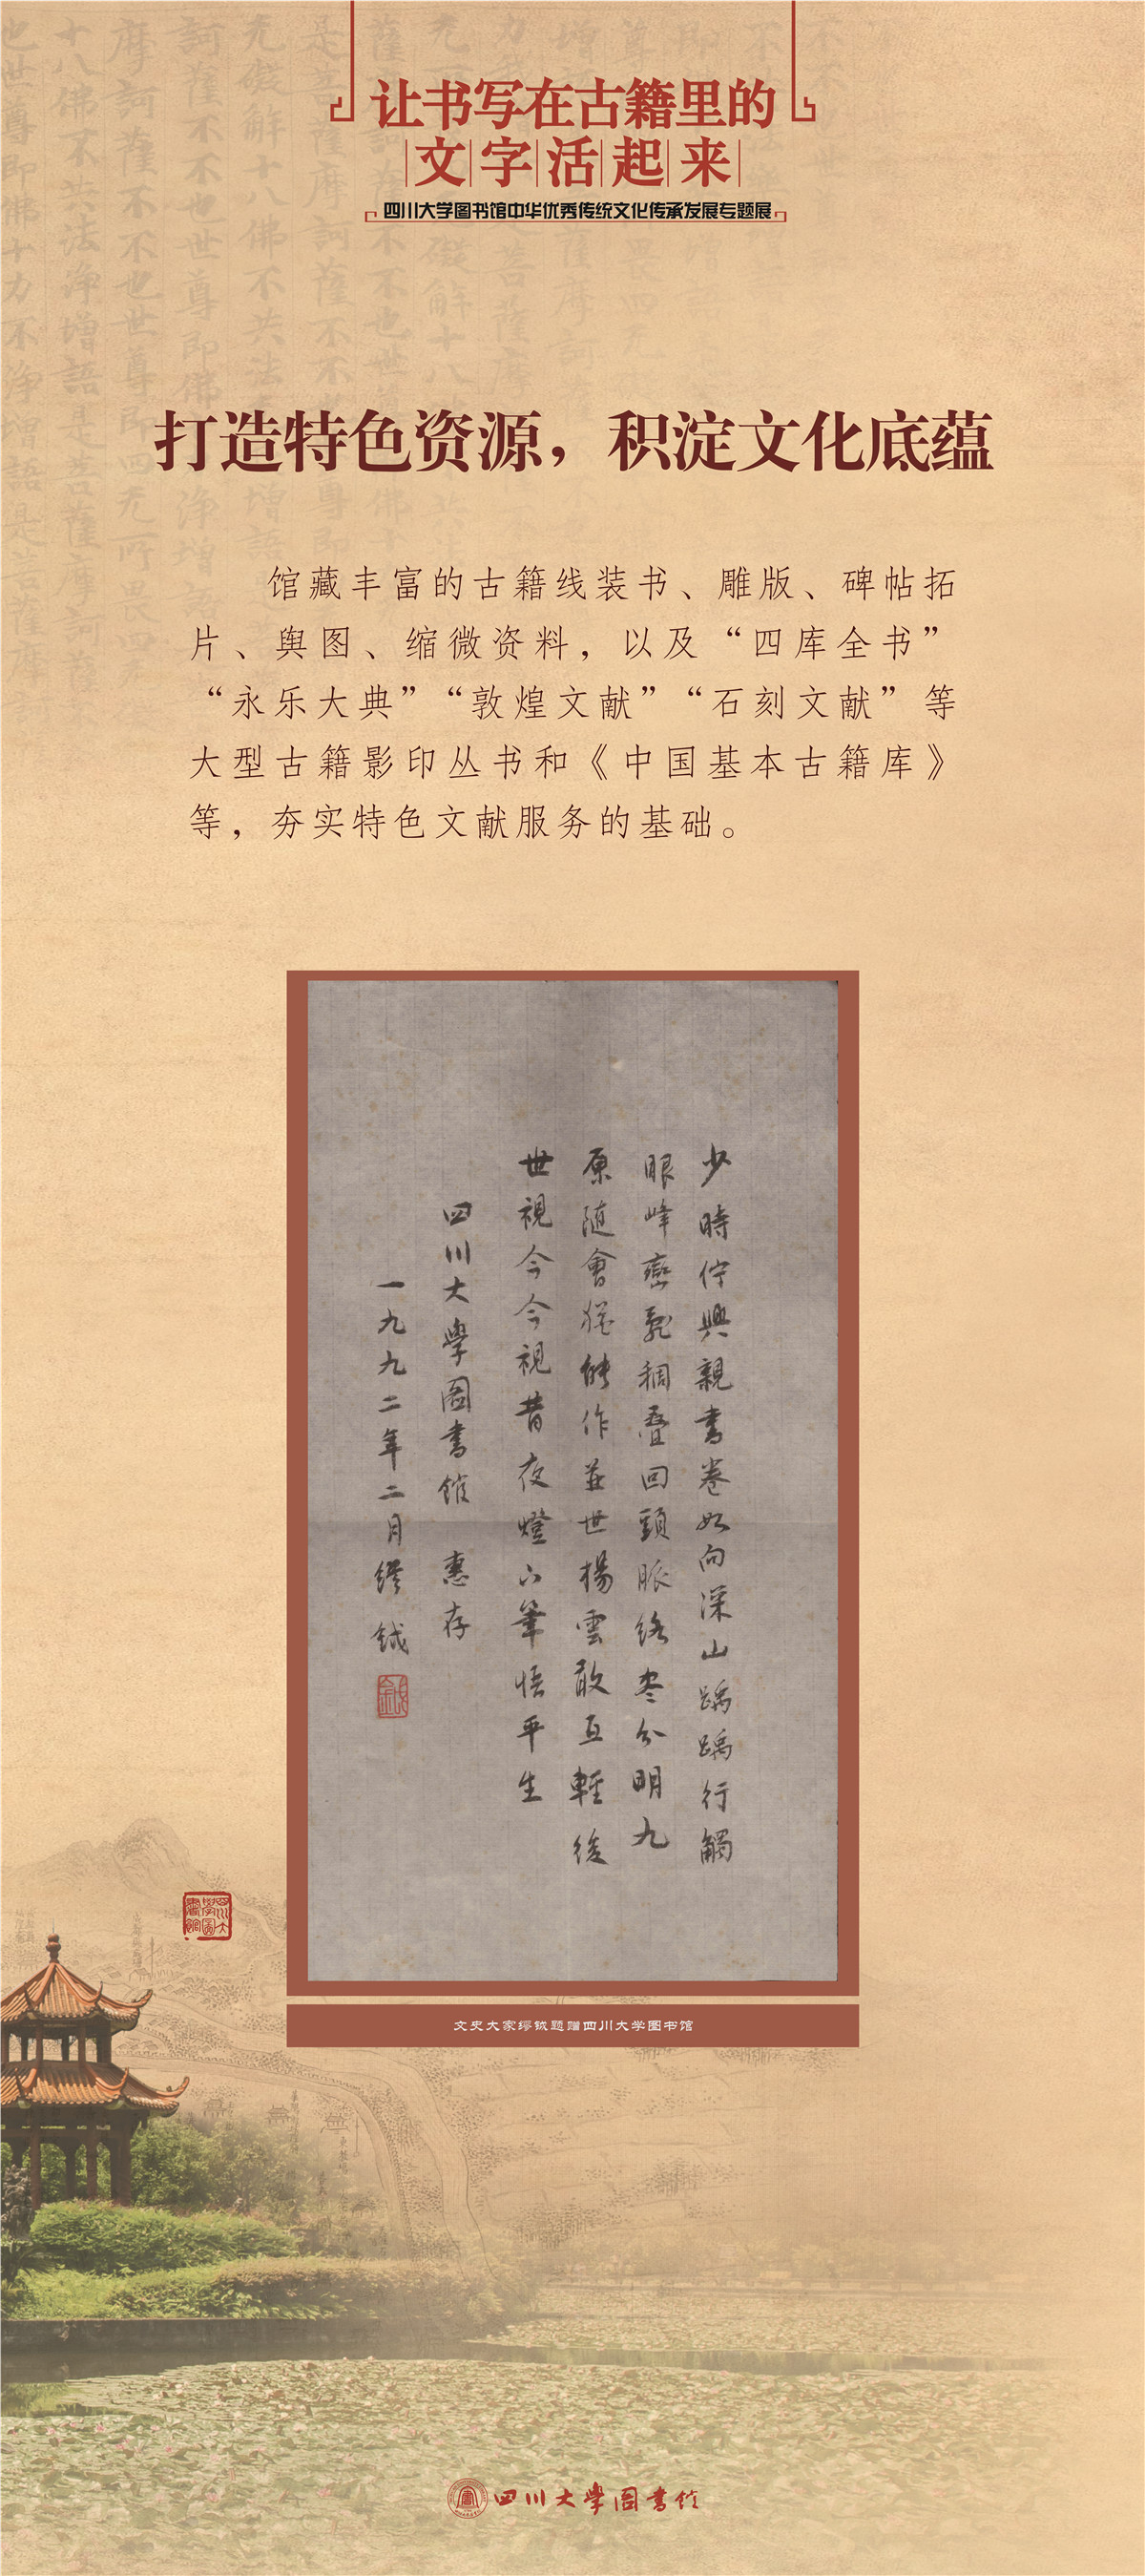 让书写在古籍里的
文字活起来
四川大学图书馆中华优秀传统文化传承发展专题展
打造特色资源，积淀文化底蕴
馆藏丰富的古籍线装书、雕版、碑帖拓
片、舆图、缩微资料，以及“四库全书”
“永乐大典”“敦煌文献”“石刻文献”等
大型古籍影印丛书和《中国基本古籍库》
等，夯实特色文献服务的基础。
少時佇興親書卷如向深山踽踽行觸
眼峰巒亂稠疊回頭脈絡盡分明九
原隨會猶能作並世楊雲敢互輕後
世視今今視昔夜燈下筆悟平生
四川大學圖書館 惠存
一九九二年二月繆鉞
四川大學圖書館
文史大家缪钺题赠四川大学图书馆
四川大學圖書館